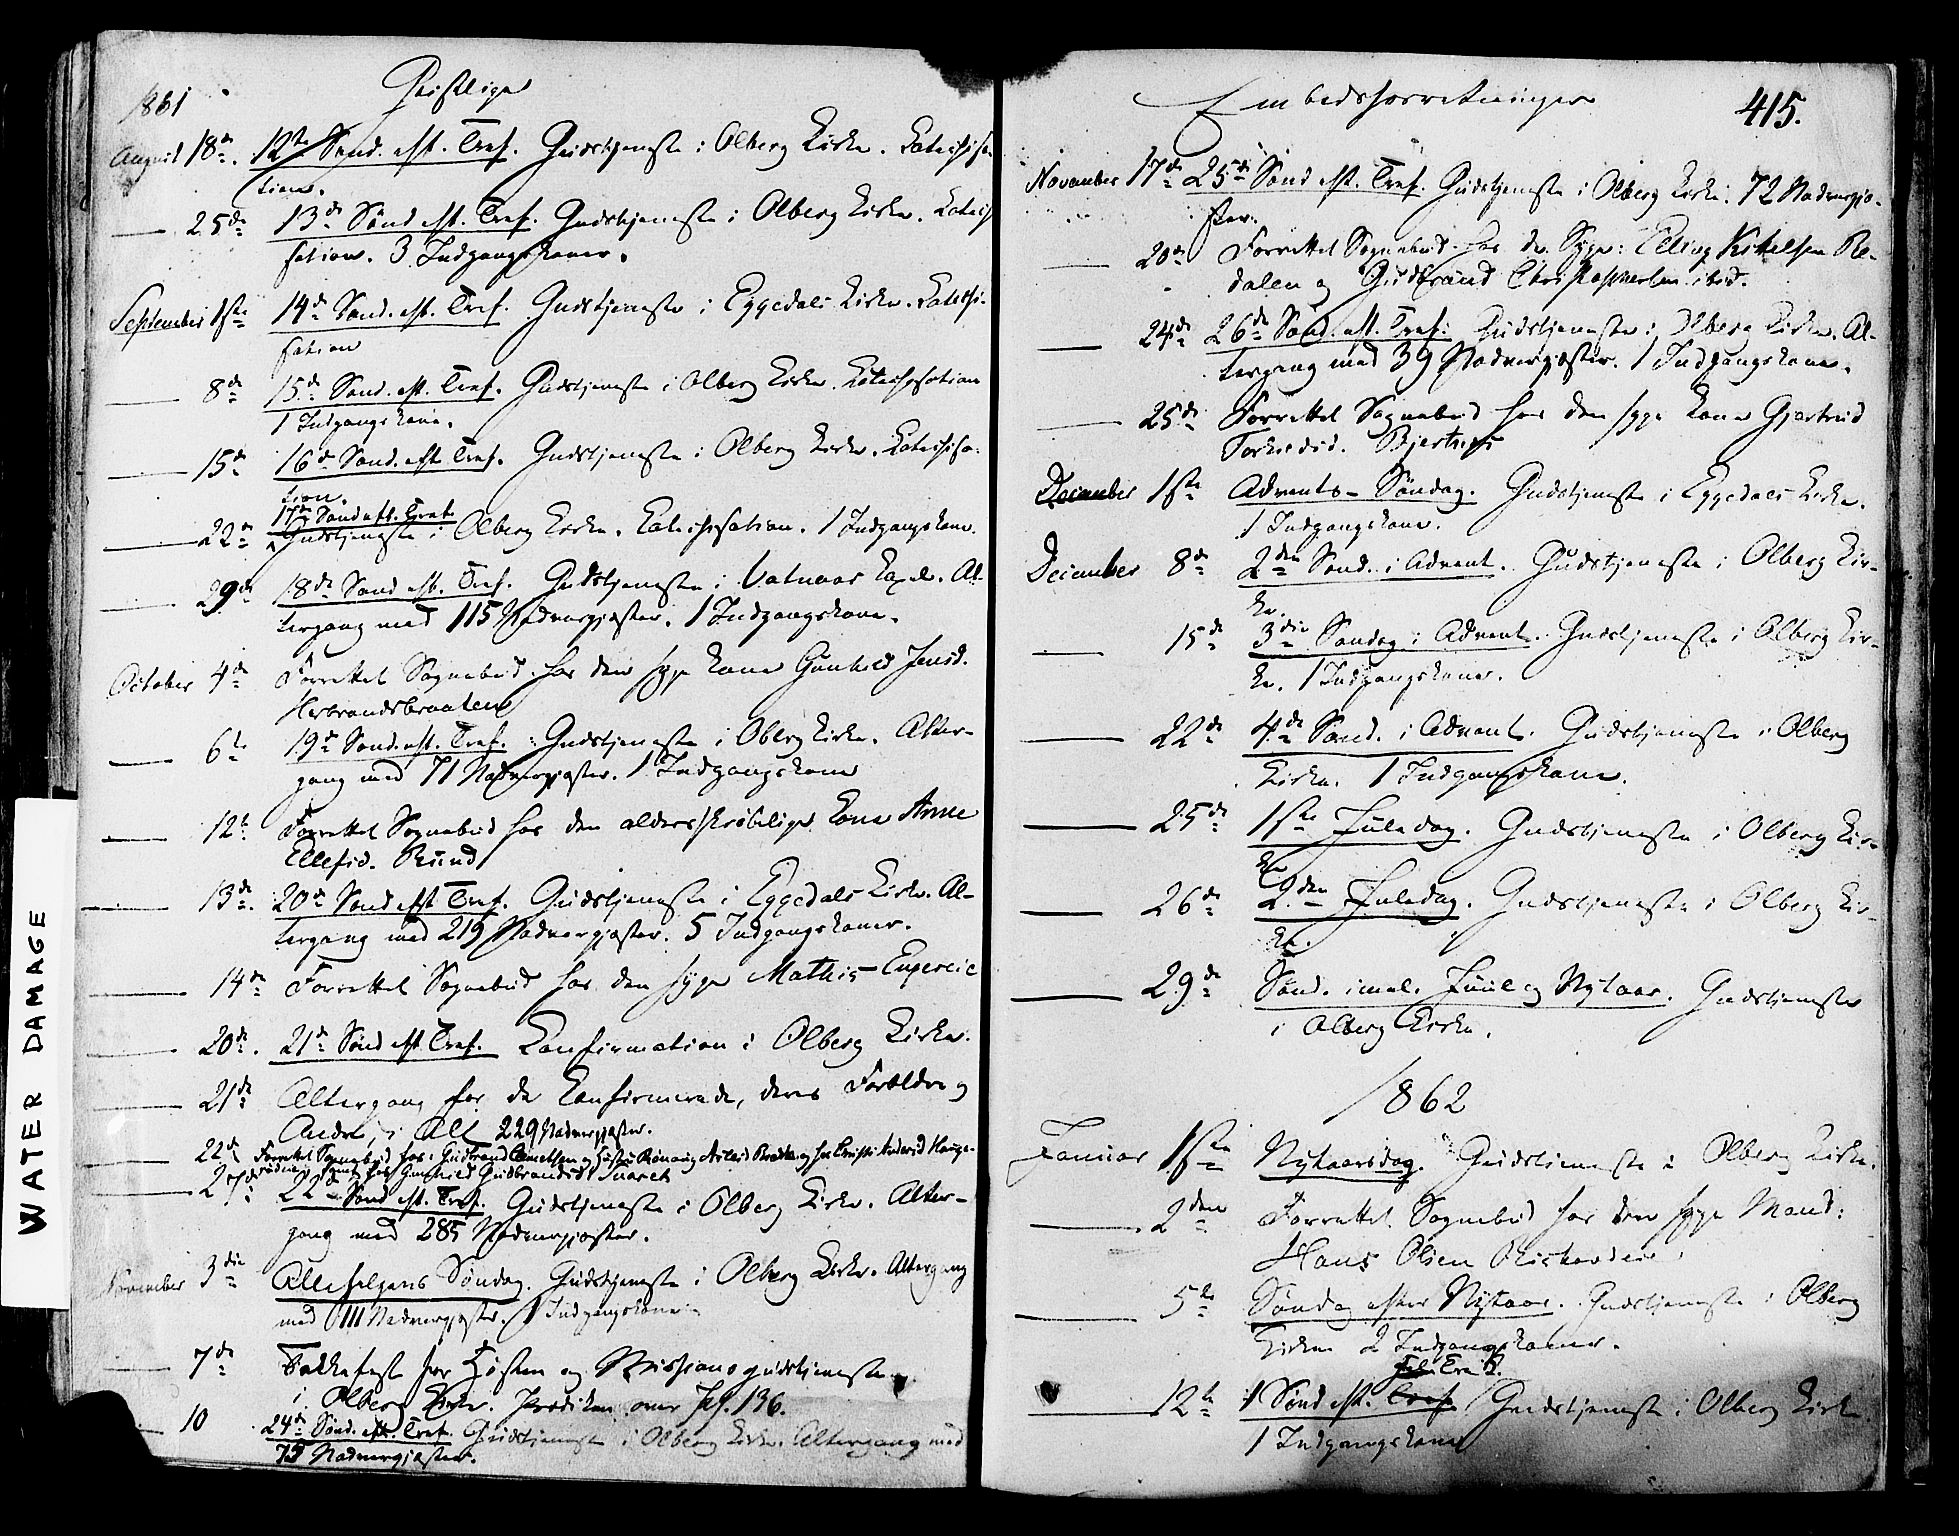 1861 Geistlige
August 18de 12te Sønd. eft. Tref. Gudstjeneste i Olberg Kirke. Katechisa-
tion.
25de 13de Sønd. eft. Tref. Gudstjeneste i Olberg Kirke. Katechi-
sation. 3 Indgangskoner.
September 1ste 14de Sønd. eft. Tref. Gudstjeneste i Eggedals Kirke. Katechi-
sation
8de 15de Sønd. eft. Tref. Gudstjeneste i Olberg Kirke. Katechisation
1 Indgangskone.
15de 16de Sønd. eft. Tref. Gudstjeneste i Olberg Kirke. Katechisa-
tion.
17de Sønd eft. Tref.
22de Gudstjeneste i Olberg Kirke. Katechisation. 1 Indgangskone.
29de 18de Sønd eft. Tref. Gudstjeneste i Vatnaas Kapel. Al-
tergang med 115 Nadvergjæster. 1 Indgangskone.
October 4de Forrettet Sognebud hos den syge Kone Gunhild Jensd.
Herbrandsbraaten
6te 19de Sønd. eft. Tref. Gudstjeneste i Olberg Kirke. Alter-
gang med 71 Nadvergjæster. 1 Indgangskone
12te Forrettet Sognebud hos den alderskrøbelige Kone Anne
Ellefsd. Rund
13de 20de Sønd eft Tref. Gudstjeneste i Eggedals Kirke. Al-
tergang med 219 Nadvergjæster. 5 Indgangskoner.
14de Forrettet Sognebud hos den syge Mathis
20de. 21de Sønd eft. Tref. Confirmation i Olberg Kirke.
21de Altergang for de Confirmerede, deres Forældre og
Andre, i Alt 229 Nadvergjæster.
22de Forrettet Sognebud hos Gudbrand og Hustru og hos
samt hos Gunhild Gudbrandsd.
27de 22de Sønd eft. Tref. Gudstjeneste i Olberg Kirke. Alter-
gang med 285 Nadvergjæster.
November 3die Allehelgens Søndag. Gudstjeneste i Olberg Kirke. Altergang
med 111 Nadvergjæster. 1 Indgangskone
7de Takkefest for Høsten og Missionsgudstjeneste
i Olberg Kirke. Prædiken over Ps. 136.
10 24de Sønd. eft. Tref. Gudstjeneste i Olberg Kirke. Altergang med
75 Nadvergjæster.
Embedsforretninger 415.
November 17de 25de Sønd eft. Tref. Gudstjeneste i Olberg Kirke. 72 Nadvergjæ-
ster.
20de Forrettet Sognebud hos de Syge: Elling Kittelsen Re-
dalen og Gudbrand Christophersen ibid.
24de 26de Sønd. eft. Tref. Gudstjeneste i Olberg Kirke. Al-
tergang med 39 Nadvergjæster. 1 Indgangskone.
25de Forrettet Sognebud hos den syge Kone Gjertrud
December 1ste Advents-Søndag. Gudstjeneste i Eggedals Kirke.
1 Indgangskone.
December 8de 2den Sønd. i Advent. Gudstjeneste i Olberg Kir-
ke.
15de 3die Søndag i Advent. Gudstjeneste i Olberg Kir-
ke. 1 Indgangskone.
22de 4de Sønd. i Advent. Gudstjeneste i Olberg
Kirke. 1 Indgangskone.
25de 1ste Juledag. Gudstjeneste i Olberg Kir-
ke
26de 2den Juledag. Gudstjeneste i Olberg Kir-
ke.
29de Sønd. imel. Juul og Nytaar. Gudstjeneste
i Olberg Kirke.
1862
Januar 1ste Nytaarsdag. Gudstjeneste i Olberg Kirke.
2den Forrettet Sognebud hos den syge Mand:
Hans Olsen
5te Søndag efter Nytaar. Gudstjeneste i Olberg
Kirke. 2 Indgangskoner.
12te 1 Sønd eft. Gudstjeneste i Olberg Kirke.
1 Indgangskone
WATER DAMAGE